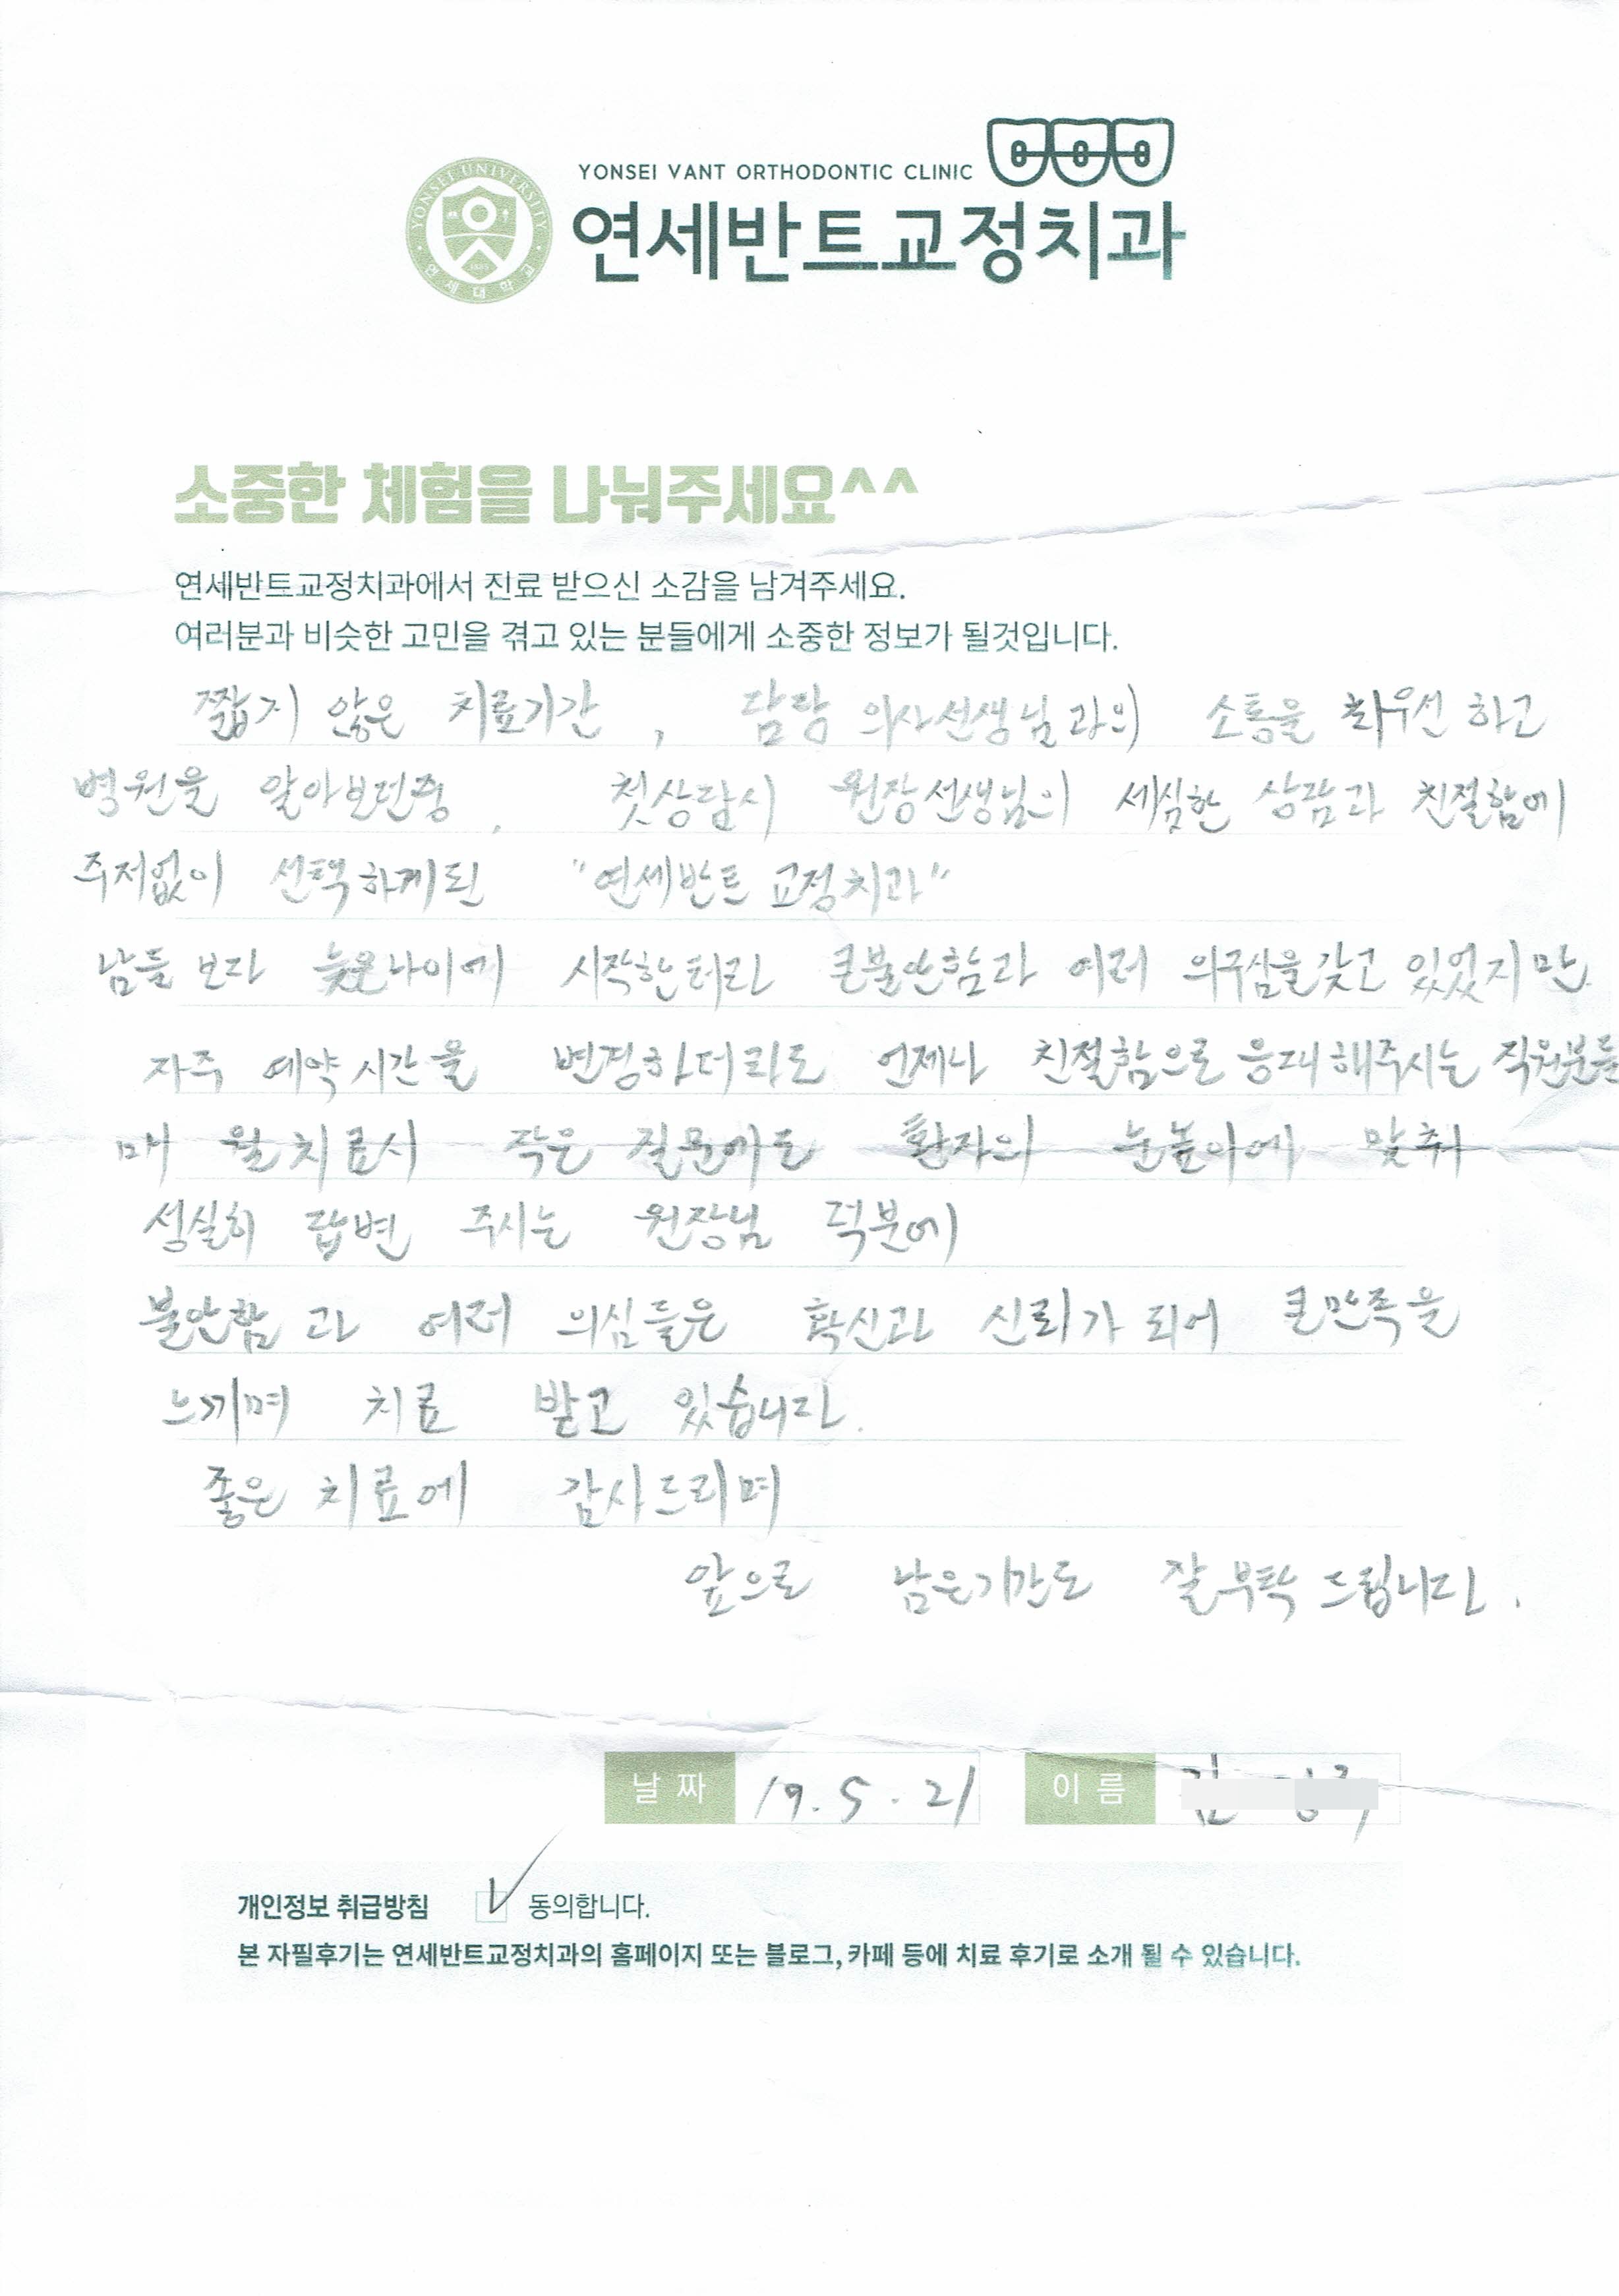 YONSEI VANT ORTHODONTIC CLINIC
YONSEI UNIVERSITY
1885
연세대학교
연세반트교정치과
소중한 체험을 나눠주세요^^
연세반트교정치과에서 진료 받으신 소감을 남겨주세요.
여러분과 비슷한 고민을 겪고 있는 분들에게 소중한 정보가 될것입니다.
짧지 않은 치료기간 , 담당 의사선생님과의 소통을 최우선 하고
병원을 알아보던중 , 첫상담시 원장선생님의 세심한 상담과 친절함에
주저없이 선택하게된 "연세반트 교정치과"
남들 보다 늦은나이에 시작한터라 큰불안함과 여러 의구심을 갖고 있었지만
자주 예약시간을 변경하더라도 언제나 친절함으로 응대해주시는 직원분들
매 월 치료시 작은 질문에도 환자의 눈높이에 맞춰
성실히 답변 주시는 원장님 덕분에
불안함 과 여러 의심들은 확신과 신뢰가 되어 큰만족을
느끼며 치료 받고 있습니다.
좋은 치료에 감사드리며
앞으로 남은기간도 잘 부탁 드립니다.
날짜 19. 5. 21 이름 김
개인정보 취급방침 동의합니다.
본 자필후기는 연세반트교정치과의 홈페이지 또는 블로그, 카페 등에 치료 후기로 소개 될 수 있습니다.